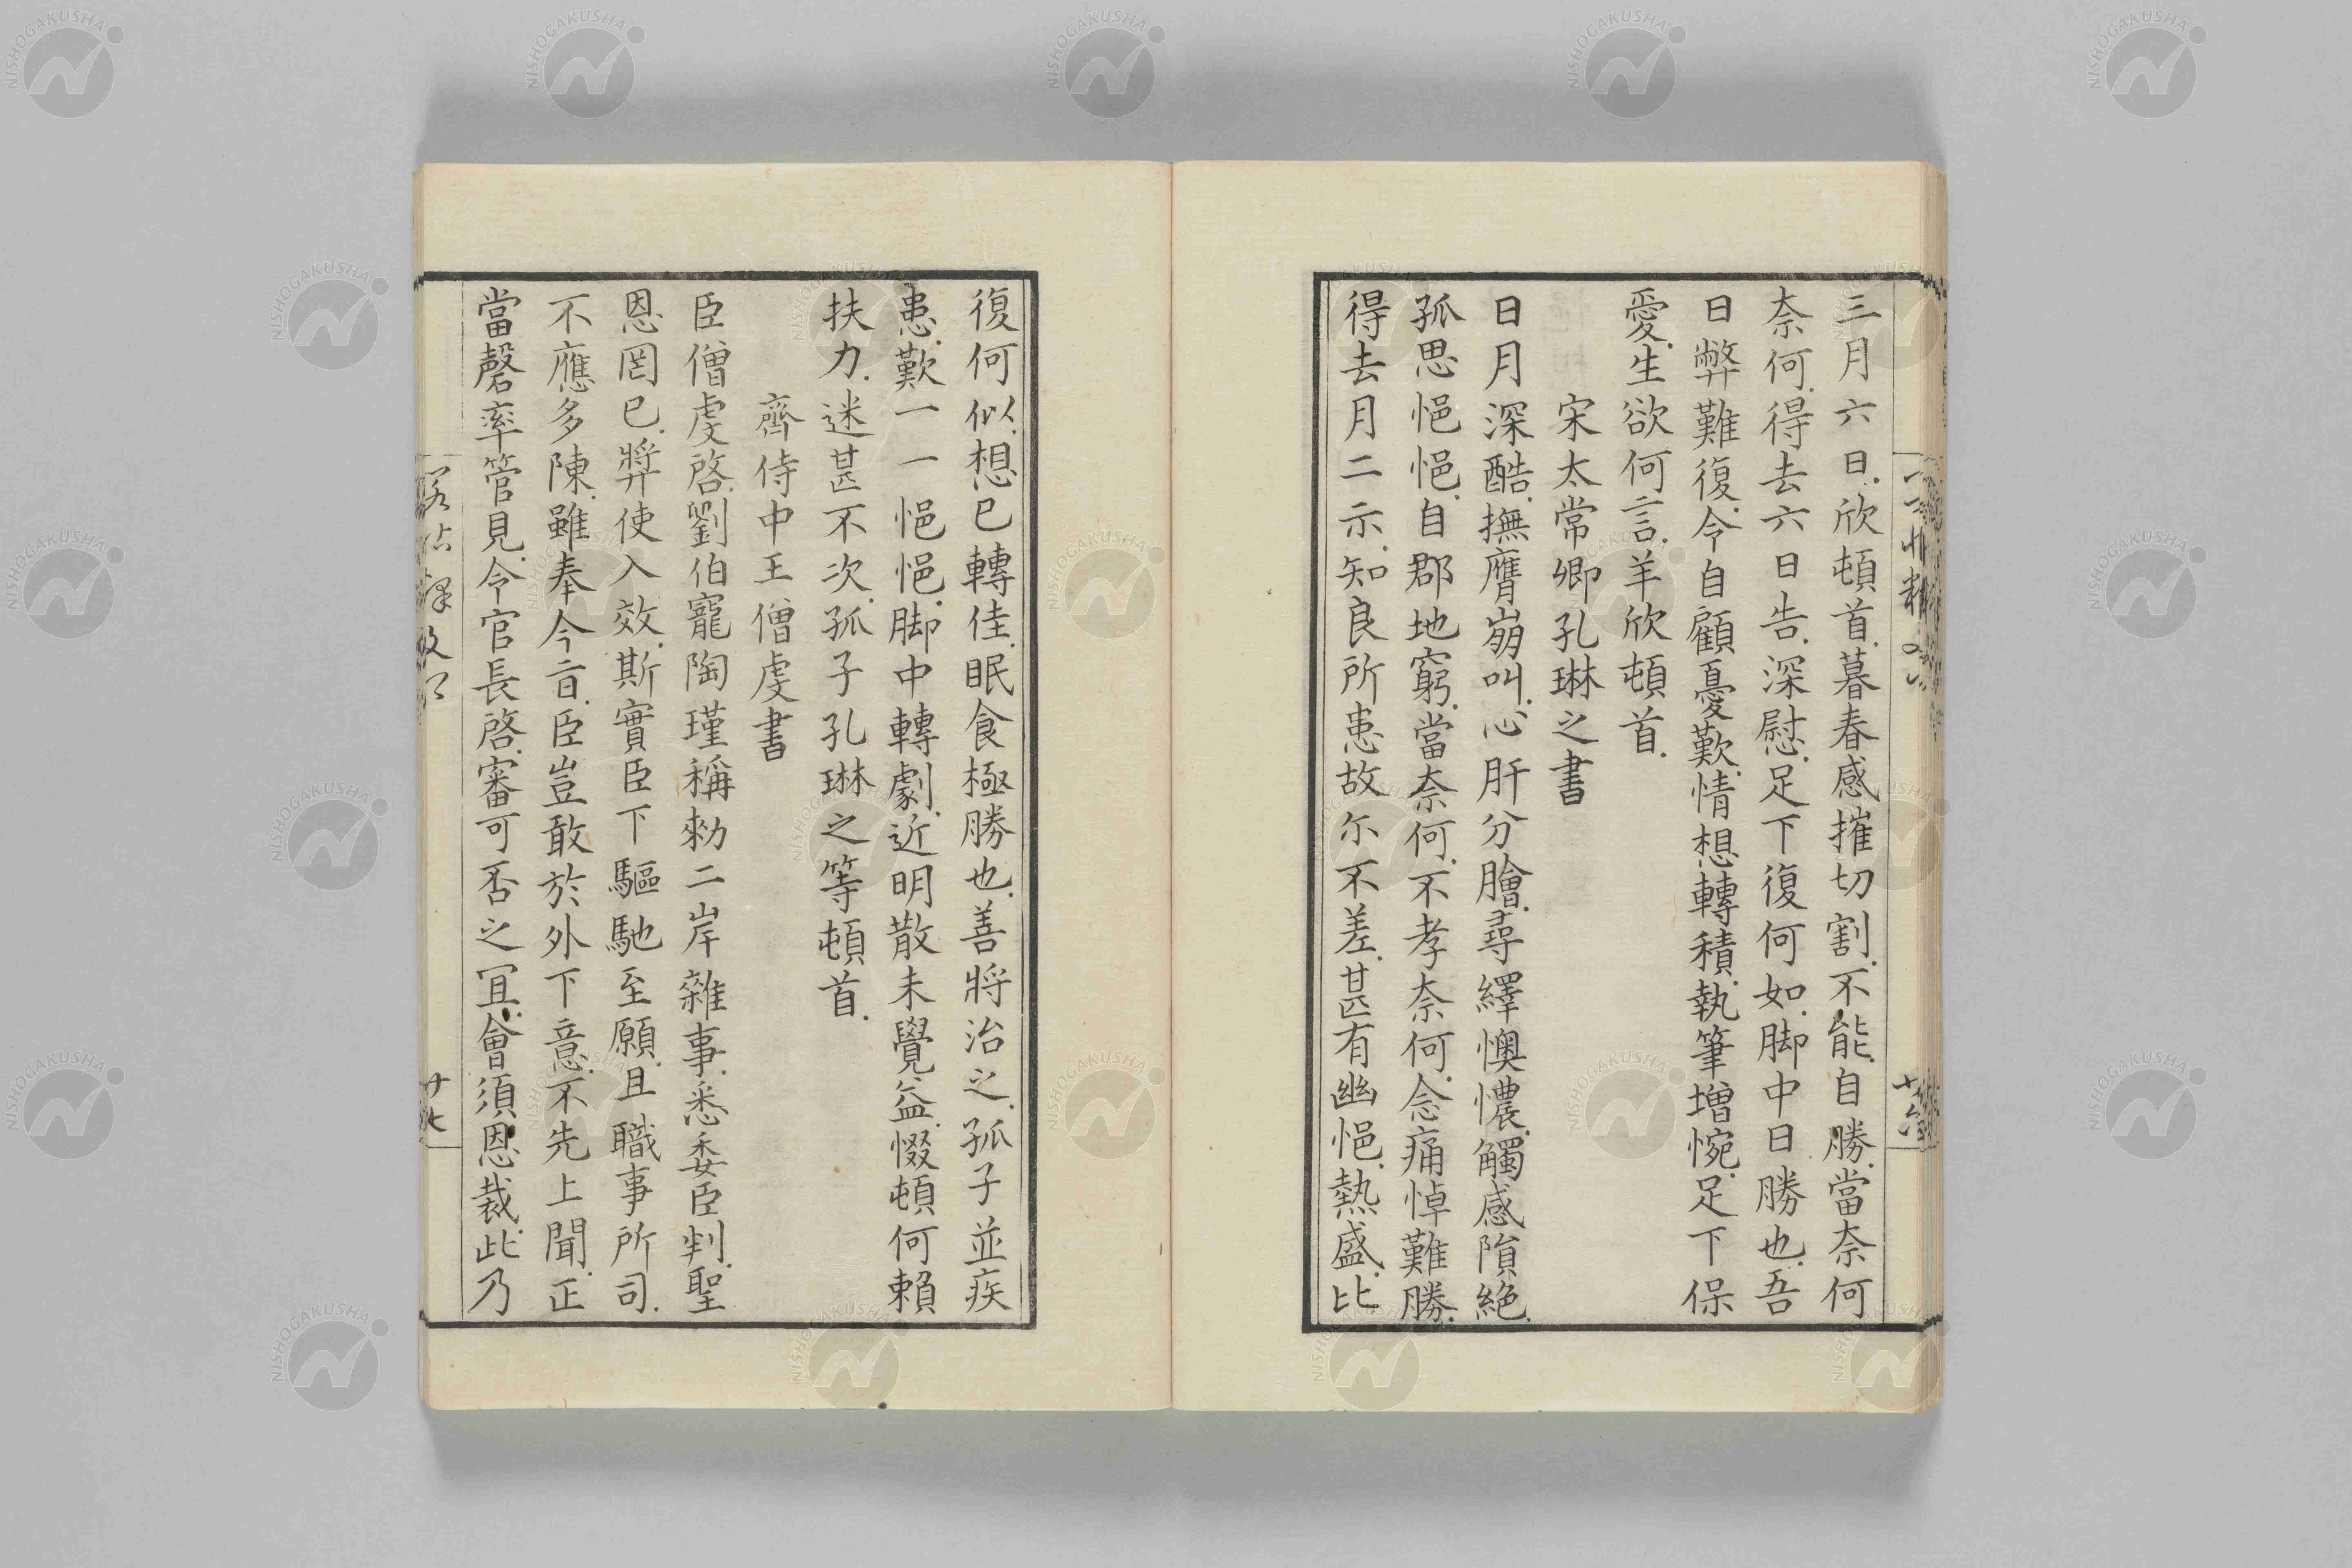 三月六日欣頓首暮春感摧切割不能自勝當奈何
奈何得去六日告深慰足下復何如脚中日勝也吾
日弊難復令自顧憂歎情想轉積執筆增惋足下保
愛生欲何言羊欣頓首
宋太常卿孔琳之書
日月深酷撫膺崩叫心肝分膾尋繹懊憹觸感隕絶
孤思悒悒自郡地窮當奈何不孝奈何念痛悼難勝
得去月二示知良所患故尓不差甚有幽悒熱盛比
復何似想已轉佳眠食極勝也善將治之孤子並疾
患歎一一悒悒脚中轉劇近明散未覺益惙頓何賴
扶力迷甚不次孤子孔琳之等頓首
齊侍中王僧虔書
臣僧虔啓劉伯寵陶瑾稱勑二岸雜事悉委臣判聖
恩罔已弊使入效斯實臣下驅馳至願且職事所司
不應多陳雖奉今旨臣豈敢於外下意不先上聞正
當罄率管見令官長啓審可否之冝會須恩裁此乃
廿七
NISHOGAKUSHA